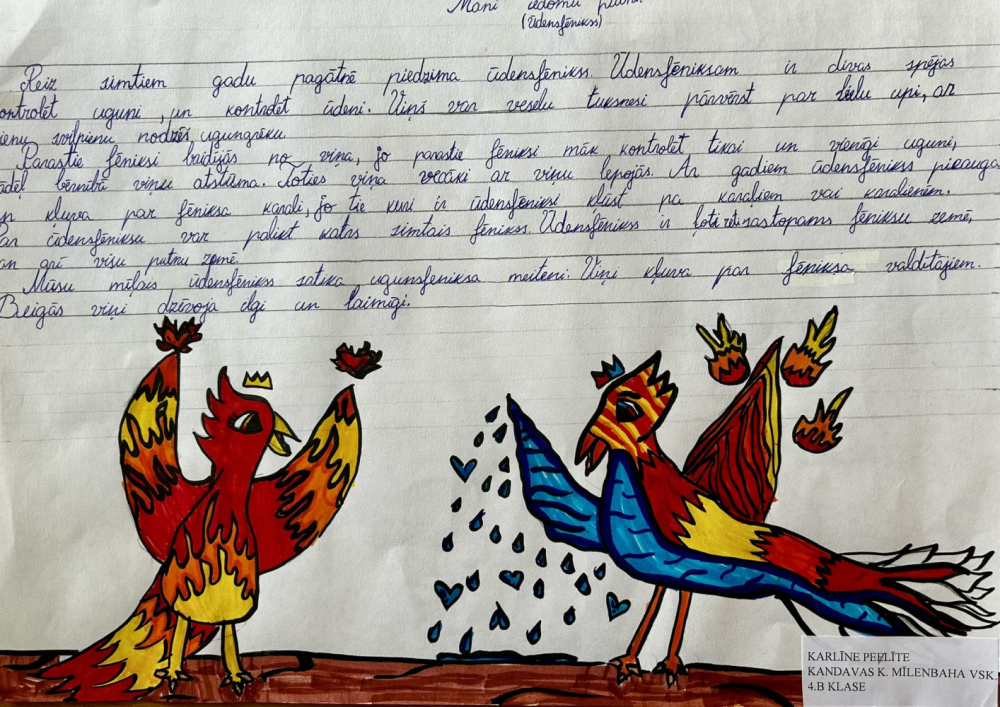 Mani iedomu putni.
(Ūdensfēnikss)
Reiz simtiem gadu pagātnē piedzima ūdensfēnikss. Ūdensfēniksam ir divas spējas
ontrolēt uguni, un kontrolēt ūdeni. Viņš var veselu tuksnesi pārvērst par lielu upi, ar
ienu svilpienu nodzēš ugungrēku.
Parastie fēniksi baidījās no viņa, jo parastie fēniksi māk kontrolēt tikai un vienīgi uguni,
ādēļ bērnībā viņu atstūma. Toties viņa vecāki ar viņu lepojās. Ar gadiem ūdensfēnikss pieauga
un kļuva par fēniksa karali, jo tie kuri ir ūdensfēniksi klūst pa karaliem vai karalienēm.
Par ūdensfēniksu var palikt katrs simtais fēnikss. Ūdensfēnikss ir ļoti reti sastopams fēniksu zemē,
an arī visu putnu zemē.
Mūsu mīļais ūdensfēnikss satika ugunsfeniksa meiteni. Viņi kļuva par fēniksa valdītājiem.
Beigās viņi dzīvoja ilgi un laimīgi.
KARLĪNE PEELĪTE
KANDAVAS K. MĪLENBAHA VSK.
4.B KLASE